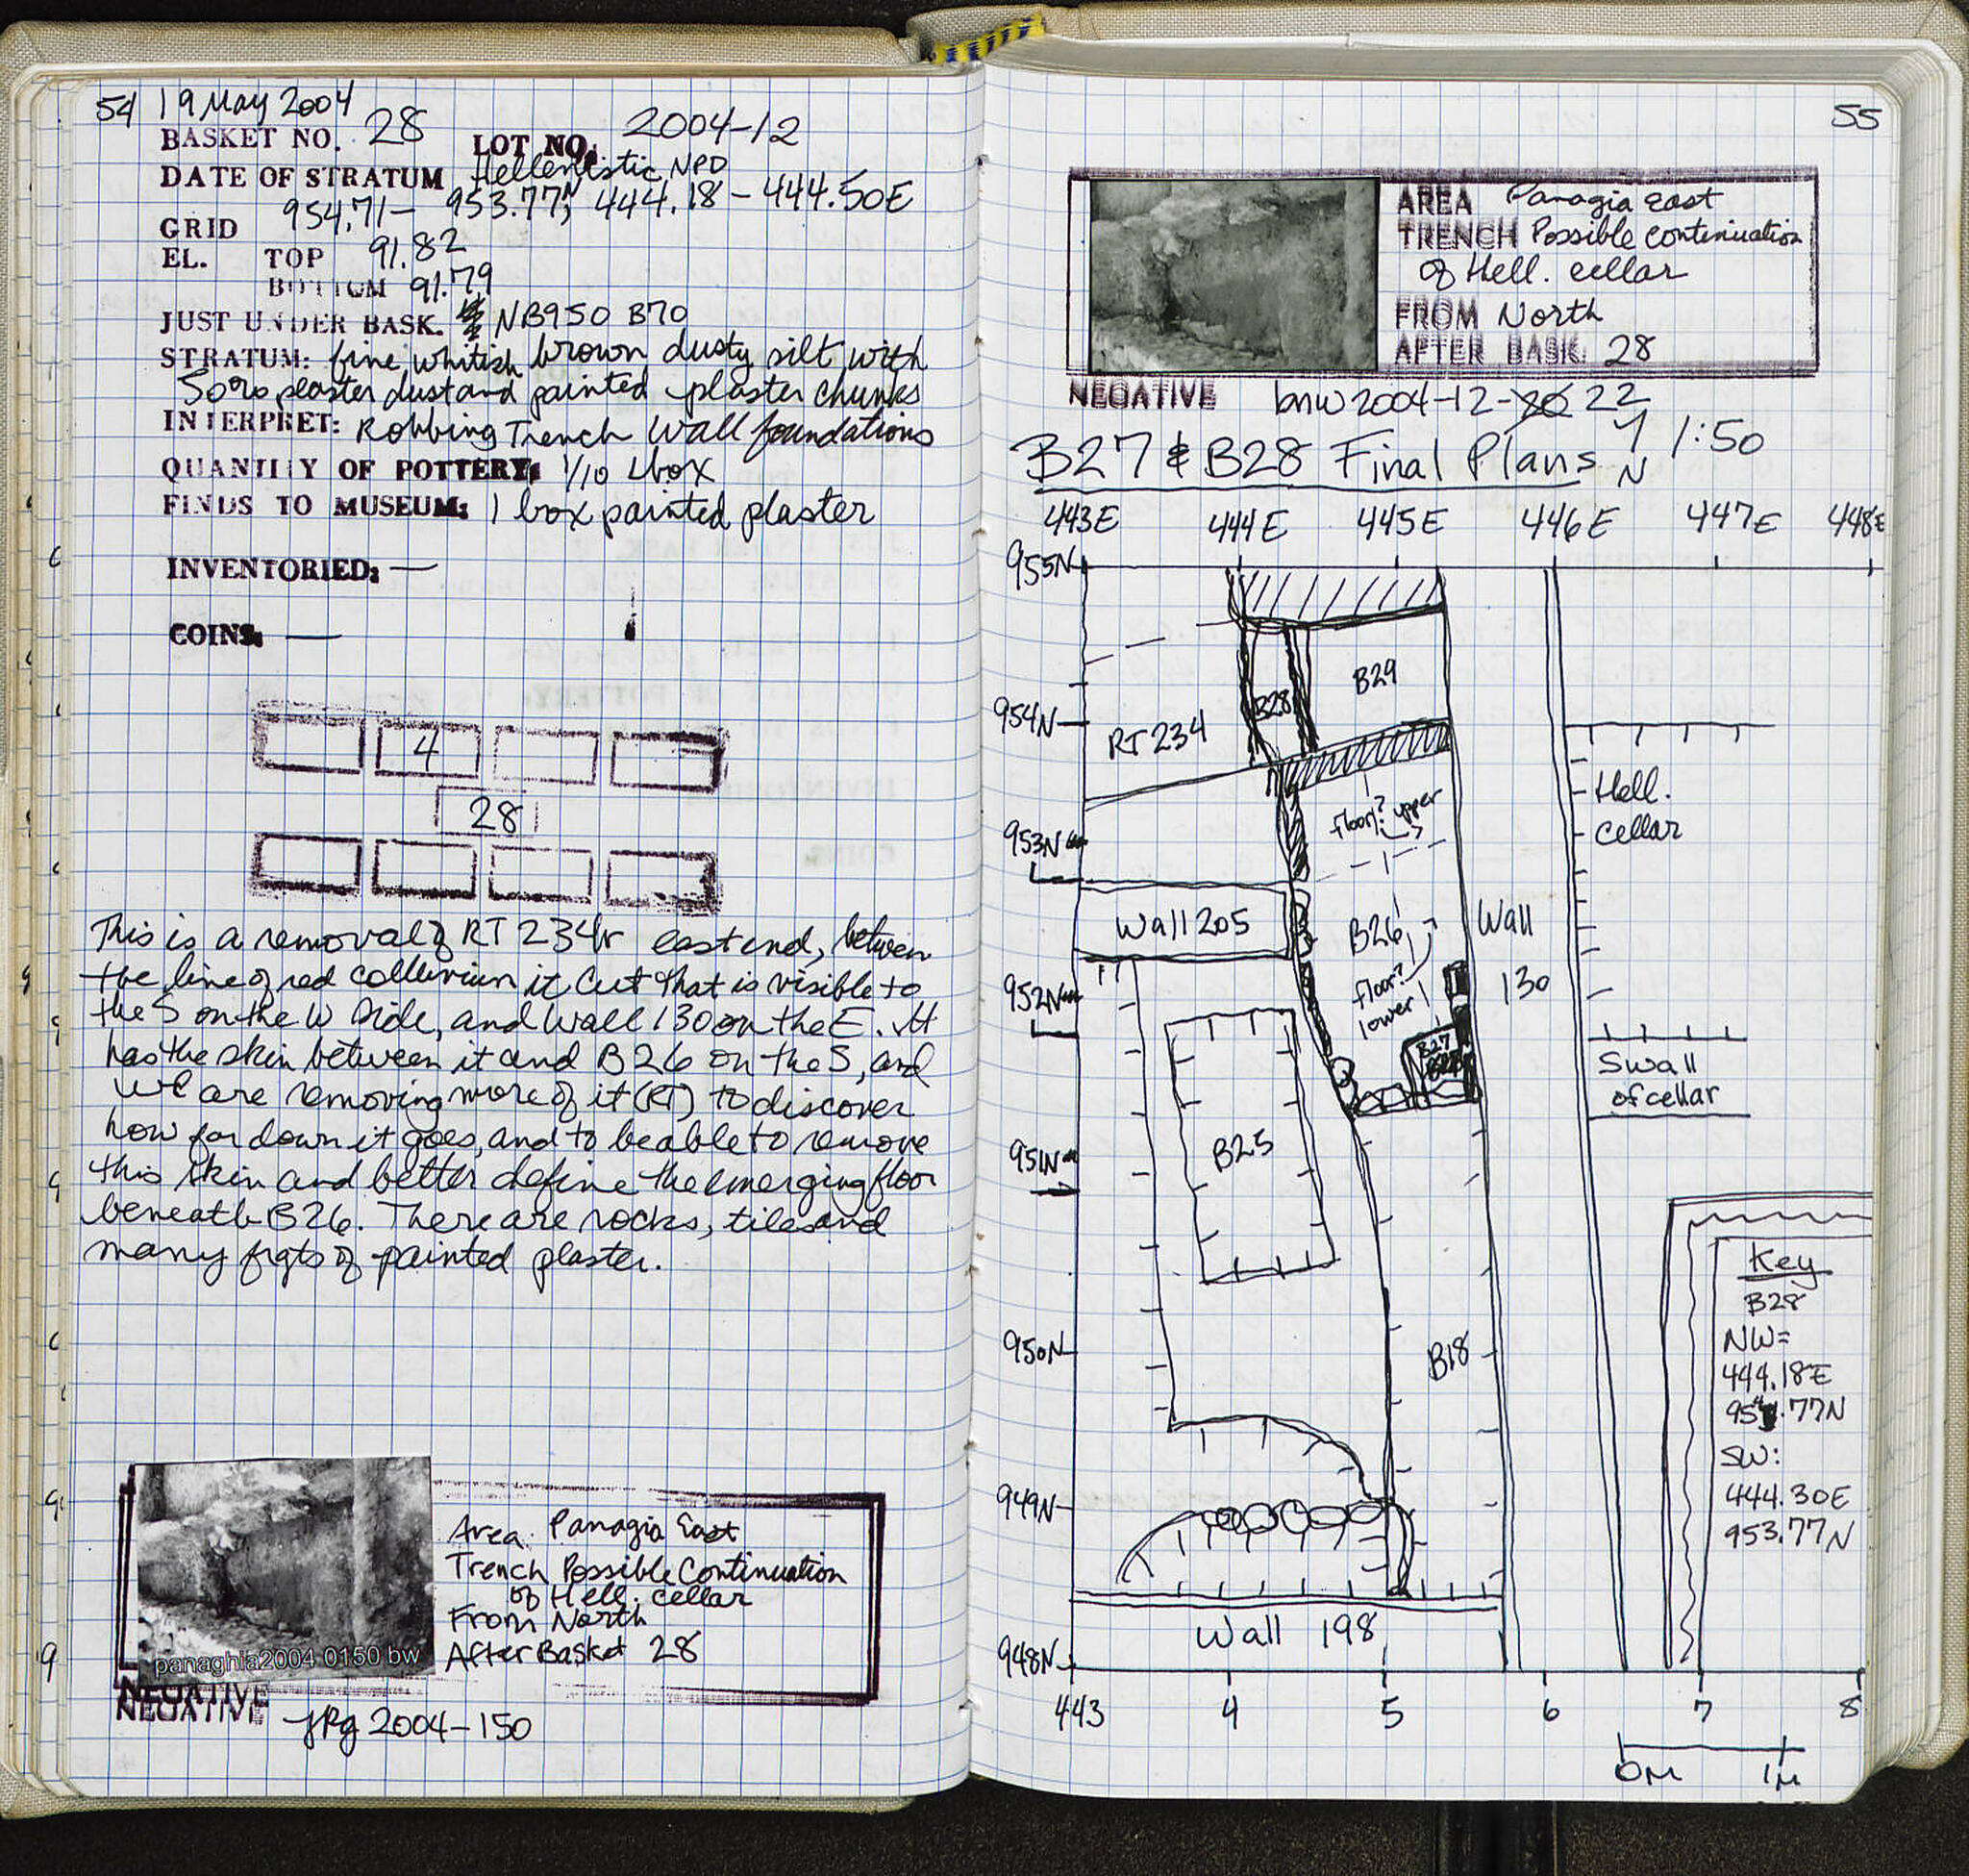 54 19 May 2004
BASKET NO. 28 LOT NO. 2004-12
DATE OF STRATUM Hellenistic NPD
GRID 954.71- 953.77N, 444.18 - 444.50E
EL. TOP 91.82
BOTTOM 91.79
JUST UNDER BASK. NB950 B70
STRATUM: fine whitish brown dusty silt with
50% plaster dust and painted plaster chunks
INTERPRET: Robbing Trench Wall foundations
QUANTITY OF POTTERY: 1/10 Lbox
FINDS TO MUSEUM: 1 box painted plaster
INVENTORIED: —
COINS: —
4
28
This is a removal of RT 234's east end, between
the line of red colluvium it cut that is visible to
the S on the W side, and Wall 130 on the E. It
has the skin between it and B26 on the S, and
we are removing more of it (RT) to discover
how far down it goes, and to be able to remove
this skin and better define the emerging floor
beneath B26. There are rocks, tiles and
many frgts of painted plaster.
panaghia2004 0150 bw
Area: Panagia East
Trench Possible Continuation
of Hell. cellar
From North
After Basket 28
NEGATIVE
NEGATIVE jpg 2004-150
55
AREA Panagia East
TRENCH Possible continuation
of Hell. cellar
FROM North
AFTER BASK. 28
NEGATIVE bnw 2004-12-22
B27 & B28 Final Plans N 1:50
443E 444E 445E 446E 447E 448E
955N
B29
B28
954N
RT 234
Hell.
cellar
floor? upper
953N
Wall 205
B26
Wall
130
floor?
lower
952N
B27
S wall
of cellar
B25
951N
Key
B28
NW=
444.18E
954.77N
SW:
444.30E
953.77N
950N
B18
949N
Wall 198
948N
443 4 5 6 7 8
0M 1M